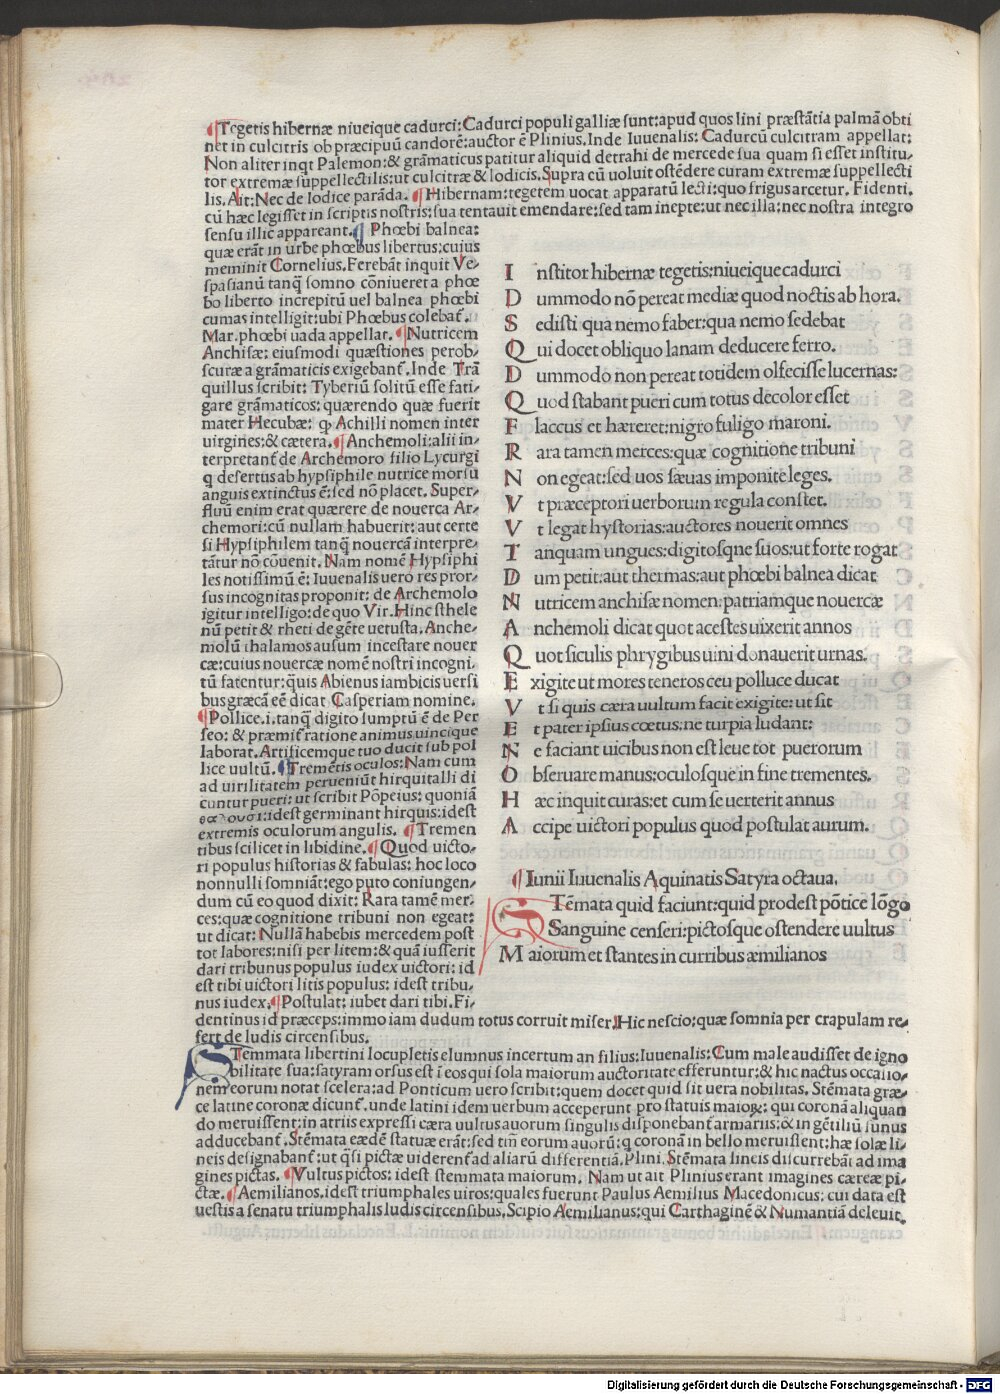 ¶Tegetis hibernæ niueique cadurci: Cadurci populi galliæ sunt: apud quos lini præstātia palmā obti
net in culcitris ob præcipuū candorē: auctor ē Plinius. Inde Iuuenalis: Cadurcū culcitram appellat:
Non aliter inqt Palemon: & grāmaticus patitur aliquid detrahi de mercede sua quam si esset institu/
tor extremæ suppellectilis: ut culcitræ & lodicis. Supra cū uoluit ostēdere curam extremæ suppellecti
lis. Ait: Nec de lodice parāda. ¶Hibernam: tegetem uocat apparatū lecti: quo frigus arcetur. Fidenti.
cū hæc legisset in scriptis nostris: sua tentauit emendare: sed tam inepte: ut nec illa: nec nostra integro
sensu illic appareant. ¶ Phœbi balnea:
quæ erāt in urbe phœbus libertus: cuius
meminit Cornelius. Ferebāt inquit Ve/
spasianū tanq̄ somno cōniueret a phœ
bo liberto increpitū uel balnea phœbi
cumas intelligit: ubi Phœbus colebat̄.
Mar. phœbi uada appellat. ¶Nutricem
Anchisæ: eiusmodi quæstiones perob/
scuræ a grāmaticis exigebant̄. Inde Trā
quillus scribit: Tyberiū solitū esse fati/
gare grāmaticos: quærendo quæ fuerit
mater Hecubæ: ꝙ Achilli nomen inter
uirgines: & cætera. ¶Anchemoli: alii in/
terpretant̄ de Archemoro filio Lycurgi
q desertus ab hypsiphile nutrice morsu
anguis extinctus ē: sed nō placet. Super/
fluū enim erat quærere de nouerca Ar/
chemori: cū nullam habuerit: aut certe
si Hypsiphilem tanq̄ nouercā interpre/
tātur nō cōuenit. Nam nomē Hypsiphi
les notissimū ē: Iuuenalis uero res pror/
sus incognitas proponit: de Archemolo
igitur intelligo: de quo Vir. Hinc sthele
nū petit & rheti de gēte uetusta. Anche/
molū thalamos ausum incestare nouer
cæ: cuius nouercæ nomē nostri incogni/
tū fatentur: quis Abienus iambicis uersi
bus græcā eē dicat Casperiam nomine.
¶Pollice. i. tanq̄ digito sumptū ē de Per
seo: & præmit̄ ratione animus uincique
laborat. Artificemque tuo ducit sub pol
lice uultū. ¶Tremētis oculos: Nam cum
ad uirilitatem perueniūt hirquitalli di
cuntur pueri: ut scribit Pōpeius: quoniā
idest germinant hirquis: idest
extremis oculorum angulis. ¶Tremen
tibus scilicet in libidine. ¶Quod uicto/
ri populus historias & fabulas: hoc loco
nonnulli somniāt: ego puto coniungen/
dum cū eo quod dixit: Rara tamē mer/
ces: quæ cognitione tribuni non egeat:
ut dicat: Nullā habebis mercedem post
tot labores: nisi per litem: & quā iusserit
dari tribunus populus iudex uictori: id
est tibi uictori litis populus: idest tribu/
nus iudex. ¶Postulat: iubet dari tibi. Fi/
dentinus id præceps: immo iam dudum totus corruit miser. Hic nescio: quæ somnia per crapulam re/
fert de ludis circensibus.
I nstitor hibernæ tegetis: niueique cadurci
D ummodo nō pereat mediæ quod noctis ab hora.
S edisti qua nemo faber: qua nemo sedebat
Q ui docet obliquo lanam deducere ferro.
D ummodo non pereat totidem olfecisse lucernas:
Q uod stabant pueri cum totus decolor esset
F laccus et hæreret: nigro fuligo maroni.
R ara tamen merces: quæ cognitione tribuni
N on egeat: sed uos sæuas imponite leges.
V t præceptori uerborum regula constet.
V t legat hystorias: auctores nouerit omnes
T anquam ungues: digitosqne suos: ut forte rogat
D um petit: aut thermas: aut phœbi balnea dicat
N utricem anchisæ nomen: patriamque nouercæ
A nchemoli dicat quot acestes uixerit annos
Q uot siculis phrygibus uini donauerit urnas.
E xigite ut mores teneros ceu polluce ducat
V t si quis cæra uultum facit exigite: ut sit
E t pater ipsius cœtus: ne turpia ludant:
N e faciant uicibus non est leue tot puerorum
O bseruare manus: oculosque in fine trementes.
H æc inquit curas: et cum se uerterit annus
A ccipe uictori populus quod postulat aurum.
¶Iunii Iuuenalis Aquinatis Satyra octaua.
STēmata quid faciunt: quid prodest pōtice lōgo
Sanguine censeri: pictosque ostendere uultus
M aiorum et stantes in curribus æmilianos
STemmata libertini locupletis elumnus incertum an filius: Iuuenalis: Cum male audisset de igno
bilitate sua: satyram orsus est ī eos qui sola maiorum auctoritate efferuntur: & hic nactus occasio/
nem eorum notat scelera: ad Ponticum uero scribit: quem docet quid sit uera nobilitas. Stēmata græ/
ce latine coronæ dicunt̄. unde latini idem uerbum acceperunt pro statuis maioꝝ: qui coronā aliquan
do meruissent: in atriis expressi cæra uultus auorum singulis disponebant̄ armariis: & in gētiliū funus
adducebant̄. Stēmata eædē statuæ erāt: sed tm̄ eorum auorū: q coronā in bello meruissent: hæ solæ li/
neis designabant̄: ut q̄si pictæ uiderent̄ ad aliarū differentiā. Plini. Stēmata lineis discurrebāt ad ima
gines pictas. ¶Vultus pictos: idest stemmata maiorum. Nam ut ait Plinius erant imagines cæreæ pi/
ctæ. ¶Aemilianos. idest triumphales uiros: quales fuerunt Paulus Aemilius Macedonicus: cui data est
uestis a senatu triumphalis ludis circensibus. Scipio Aemilianus: qui Carthaginē & Numantiā deleuit.
Digitalisierung gefördert durch die Deutsche Forschungsgemeinschaft - DFG